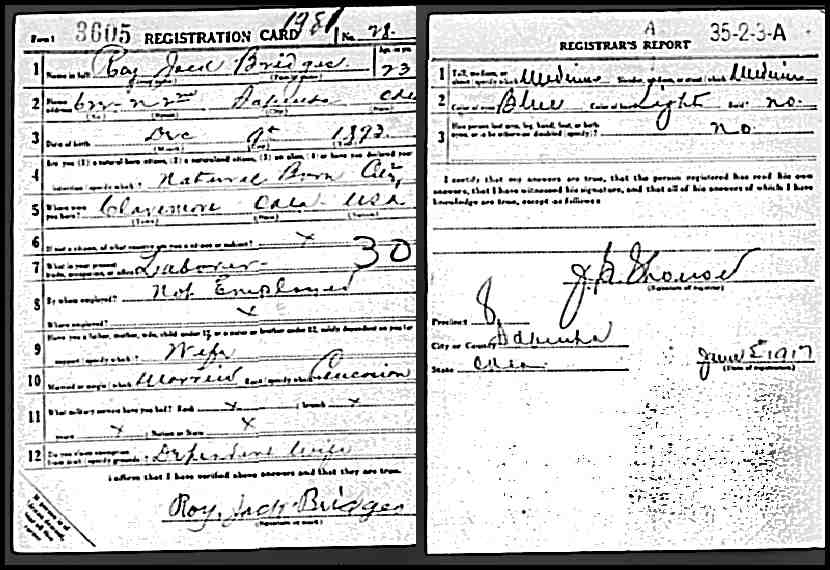 Form 1 3605 REGISTRATION CARD 1981 No. 28
Age, in yrs.
1 Name in full Roy Jack Bridges 23
(Given name) (Family name)
2 Home address N 2nd Okla
(No.) (Street) (City) (State)
3 Date of birth Dec 9th 1893
(Month) (Day) (Year)
4 Are you (1) a natural born citizen, (2) a naturalized citizen, (3) an alien, (4) or have you declared your
intention (specify which)? Natural Born Cit
5 Where were you born? Claremore Okla USA
(Town) (State) (Nation)
6 If not a citizen, of what country are you a citizen or subject? x
7 What is your present trade, occupation, or office? Laborer 30
8 By whom employed? Not Employed
Where employed? x
9 Have you a father, mother, wife, child under 12, or a sister or brother under 12, solely dependent on you for
support (specify which)? Wife
10 Married or single (which)? Married Race (specify which)? Caucasian
11 What military service have you had? Rank x ; branch x
years x ; Nation or State x
12 Do you claim exemption from draft (specify grounds)? Dependent Wife
I affirm that I have verified above answers and that they are true.
Roy, Jack Bridges
(Signature or mark)
If person is of African descent, tear off this corner
A 35-2-3-A
REGISTRAR'S REPORT
1 Tall, medium, or short (specify which)? Medium Slender, medium, or stout (which)? Medium
2 Color of eyes Blue Color of hair Light Bald? no.
3 Has person lost arm, leg, hand, foot, or both eyes, or is he otherwise disabled (specify)? no.
I certify that my answers are true, that the person registered has read his own
answers, that I have witnessed his signature, and that all of his answers of which I have
knowledge are true, except as follows:
(Signature of registrar)
Precinct 8
City or County
State Okla. June 5 1917
(Date of registration)